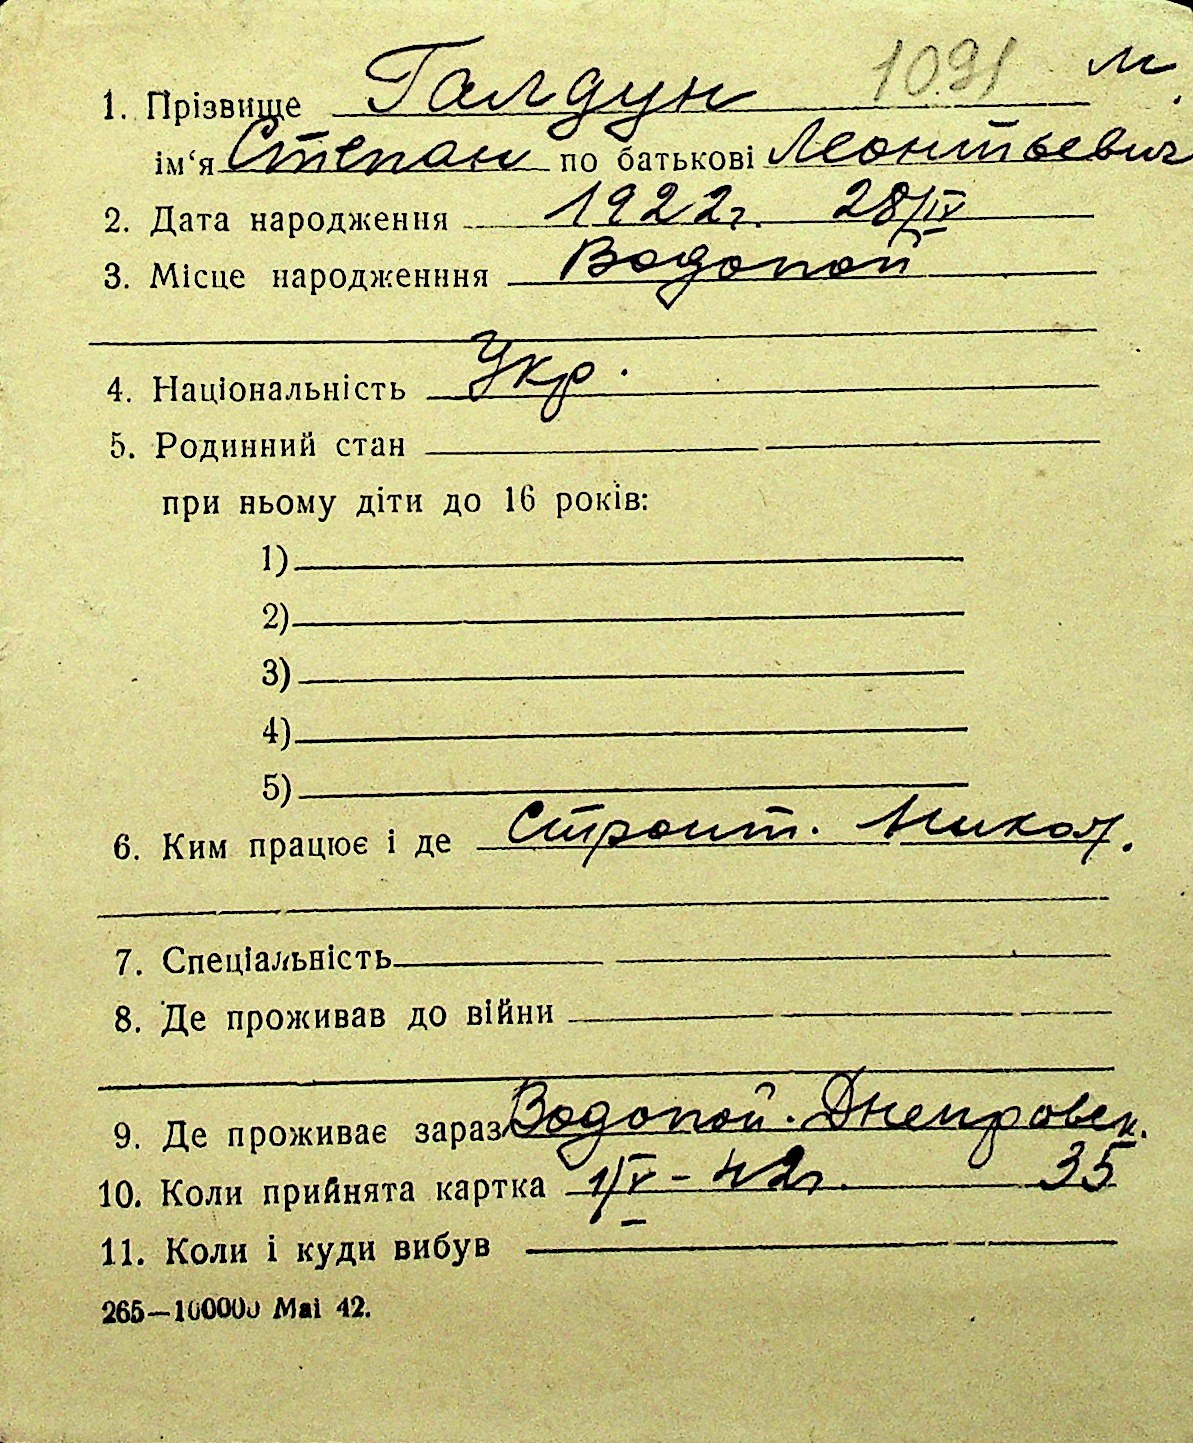 1091 м.
1. Прізвище Галдун
ім‘я Степан по батькові Леонтьевич
2. Дата народження 1922г. 28/IV
3. Місце народженння Водопой
4. Національність Укр.
5. Родинний стан
при ньому діти до 16 років:
1)
2)
3)
4)
5)
6. Ким працює і де Строит. Никол.
7. Спеціальність
8. Де проживав до війни
9. Де проживає зараз Водопой. Днепровск.
10. Коли прийнята картка 1/V - 42г. 35
11. Коли і куди вибув
265—100000 Mai 42.